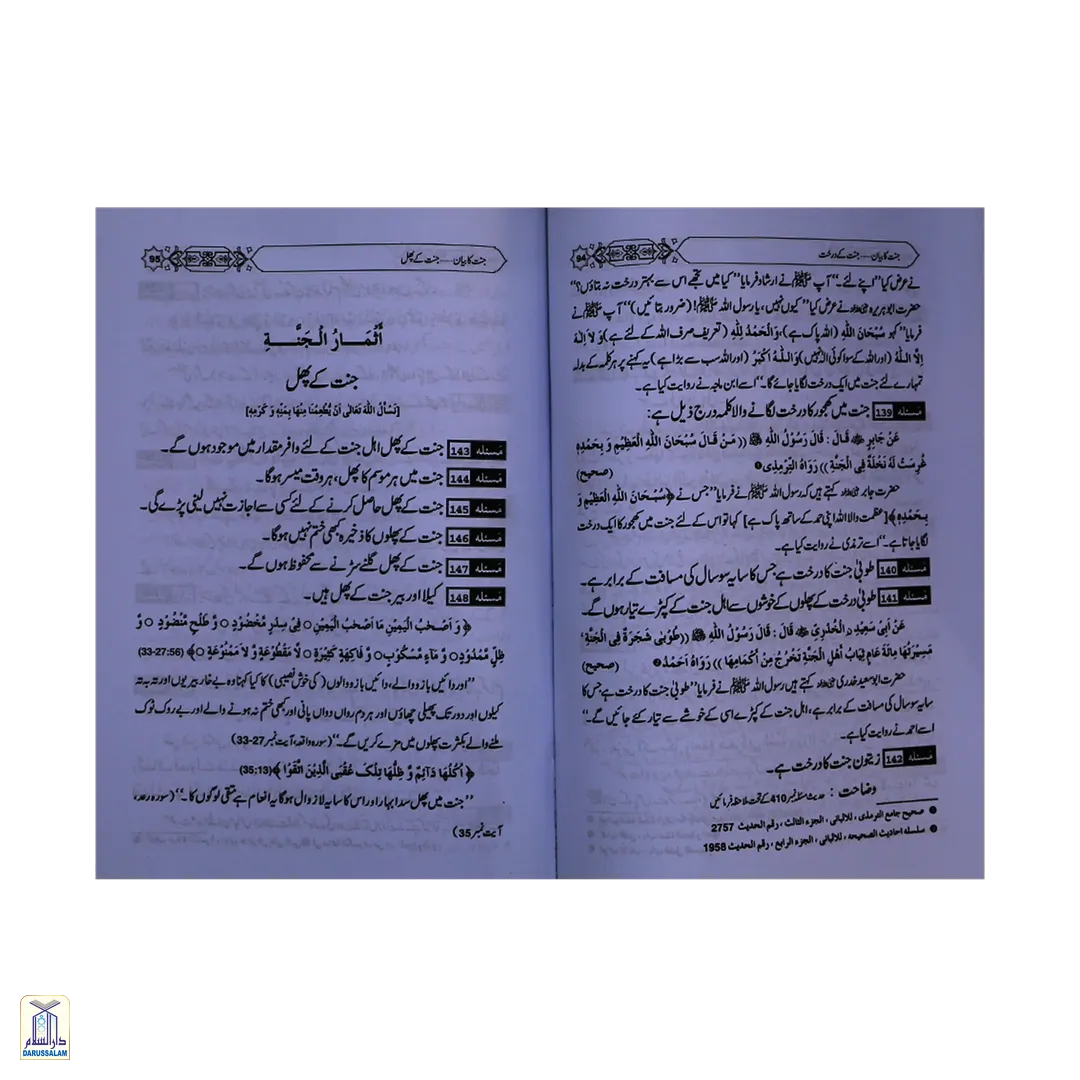 94 جنت کا بیان — جنت کے درخت
نے عرض کیا "اپنے لئے۔" آپ ﷺ نے ارشاد فرمایا "کیا میں تجھے اس سے بہتر درخت نہ بتاؤں؟"
حضرت ابو ہریرہ نے عرض کیا "کیوں نہیں، یا رسول اللہ ﷺ! (ضرور بتائیں)" آپ ﷺ نے
فرمایا "کہو سُبْحَانَ اللّٰهِ (اللہ پاک ہے)، وَالْحَمْدُ لِلّٰهِ (تعریف صرف اللہ کے لئے ہے) وَ لاَ اِلٰهَ
اِلاَّ اللّٰهُ (اور اللہ کے سوا کوئی الٰہ نہیں) وَ اللّٰهُ اَكْبَرُ (اور اللہ سب سے بڑا ہے) یہ کہنے پر ہر کلمہ کے بدلہ
تمہارے لئے جنت میں ایک درخت لگایا جائے گا۔" اسے ابن ماجہ نے روایت کیا ہے۔
مَسئلہ 139 جنت میں کھجور کا درخت لگانے والا کلمہ درج ذیل ہے:
عَنْ جَابِرٍ قَالَ : قَالَ رَسُوْلُ اللّٰهِ ﷺ ((مَنْ قَالَ سُبْحَانَ اللّٰهِ الْعَظِيْمِ وَ بِحَمْدِهٖ
غُرِسَتْ لَهٗ نَخْلَةٌ فِي الْجَنَّةِ )) رَوَاهُ التِّرْمِذِىُّ ❶ (صحيح)
حضرت جابر کہتے ہیں کہ رسول اللہ ﷺ نے فرمایا "جس نے ﴿سُبْحَانَ اللّٰهِ الْعَظِيْمِ وَ
بِحَمْدِهٖ﴾ [عظمت والا اللہ اپنی حمد کے ساتھ پاک ہے] کہا تو اس کے لئے جنت میں کھجور کا ایک درخت
لگایا جاتا ہے۔" اسے ترمذی نے روایت کیا ہے۔
مَسئلہ 140 طوبٰی جنت کا درخت ہے جس کا سایہ سو سال کی مسافت کے برابر ہے۔
مَسئلہ 141 طوبٰی درخت کے پھلوں کے خوشوں سے اہل جنت کے کپڑے تیار ہوں گے۔
عَنْ اَبِىْ سَعِيْدٍ الْخُدْرِىِّ قَالَ : قَالَ رَسُوْلُ اللّٰهِ ﷺ ((طُوْبٰى شَجَرَةٌ فِى الْجَنَّةِ
مَسِيْرَتُهَا مِائَةُ عَامٍ ثِيَابُ اَهْلِ الْجَنَّةِ تَخْرُجُ مِنْ اَكْمَامِهَا )) رَوَاهُ اَحْمَدُ ❷ (صحيح)
حضرت ابو سعید خدری کہتے ہیں رسول اللہ ﷺ نے فرمایا "طوبٰی جنت کا درخت ہے جس کا
سایہ سو سال کی مسافت کے برابر ہے، اہل جنت کے کپڑے اسی کے خوشے سے تیار کئے جائیں گے۔"
اسے احمد نے روایت کیا ہے۔
مَسئلہ 142 زیتون جنت کا درخت ہے۔
وضاحت : حدیث مسئلہ نمبر 410 کے تحت ملاحظہ فرمائیں
❶ صحيح جامع الترمذى ، للالبانى ، الجزء الثالث ، رقم الحديث 2757
❷ سلسله احاديث الصحيحه ، للالبانى ، الجزء الرابع ، رقم الحديث 1958
95 جنت کا بیان — جنت کے پھل
أَثْمَـــارُ الْـجَنَّـةِ
جنت کے پھل
[نَسْأَلُ اللّٰهَ تَعَالٰى اَنْ يُطْعِمَنَا مِنْهَا بِمَنِّهٖ وَ كَرَمِهٖ]
مَسئلہ 143 جنت کے پھل اہل جنت کے لئے وافر مقدار میں موجود ہوں گے۔
مَسئلہ 144 جنت میں ہر موسم کا پھل، ہر وقت میسر ہوگا۔
مَسئلہ 145 جنت کے پھل حاصل کرنے کے لئے کسی سے اجازت نہیں لینی پڑے گی۔
مَسئلہ 146 جنت کے پھلوں کا ذخیرہ کبھی ختم نہیں ہوگا۔
مَسئلہ 147 جنت کے پھل گلنے سڑنے سے محفوظ ہوں گے۔
مَسئلہ 148 کیلا اور بیر جنت کے پھل ہیں۔
﴿ وَ اَصْحٰبُ الْيَمِيْنِ مَا اَصْحٰبُ الْيَمِيْنِ ○ فِىْ سِدْرٍ مَّخْضُوْدٍ ○ وَّ طَلْحٍ مَّنْضُوْدٍ ○ وَّ
ظِلٍّ مَّمْدُوْدٍ ○ وَّ مَآءٍ مَّسْكُوْبٍ ○ وَّ فَاكِهَةٍ كَثِيْرَةٍ ○ لاَّ مَقْطُوْعَةٍ وَّ لاَ مَمْنُوْعَةٍ ○ ﴾ (33-27:56)
"اور دائیں بازو والے، دائیں بازو والوں (کی خوش نصیبی) کا کیا کہنا وہ بے خار بیریوں اور تہ بہ تہ
کیلوں اور دور تک پھیلی چھاؤں اور ہر دم رواں دواں پانی اور کبھی ختم نہ ہونے والے اور بے روک ٹوک
ملنے والے بکثرت پھلوں میں مزے کریں گے۔" (سورہ واقعہ، آیت نمبر 27-33)
﴿ اُكُلُهَا دَآئِمٌ وَّ ظِلُّهَا تِلْكَ عُقْبَى الَّذِيْنَ اتَّقَوْا ﴾ (35:13)
"جنت میں پھل سدا بہار اور اس کا سایہ لازوال ہوگا یہ انعام ہے متقی لوگوں کا۔" (سورہ رعد،
آیت نمبر 35)
دار السلام
DARUSSALAM